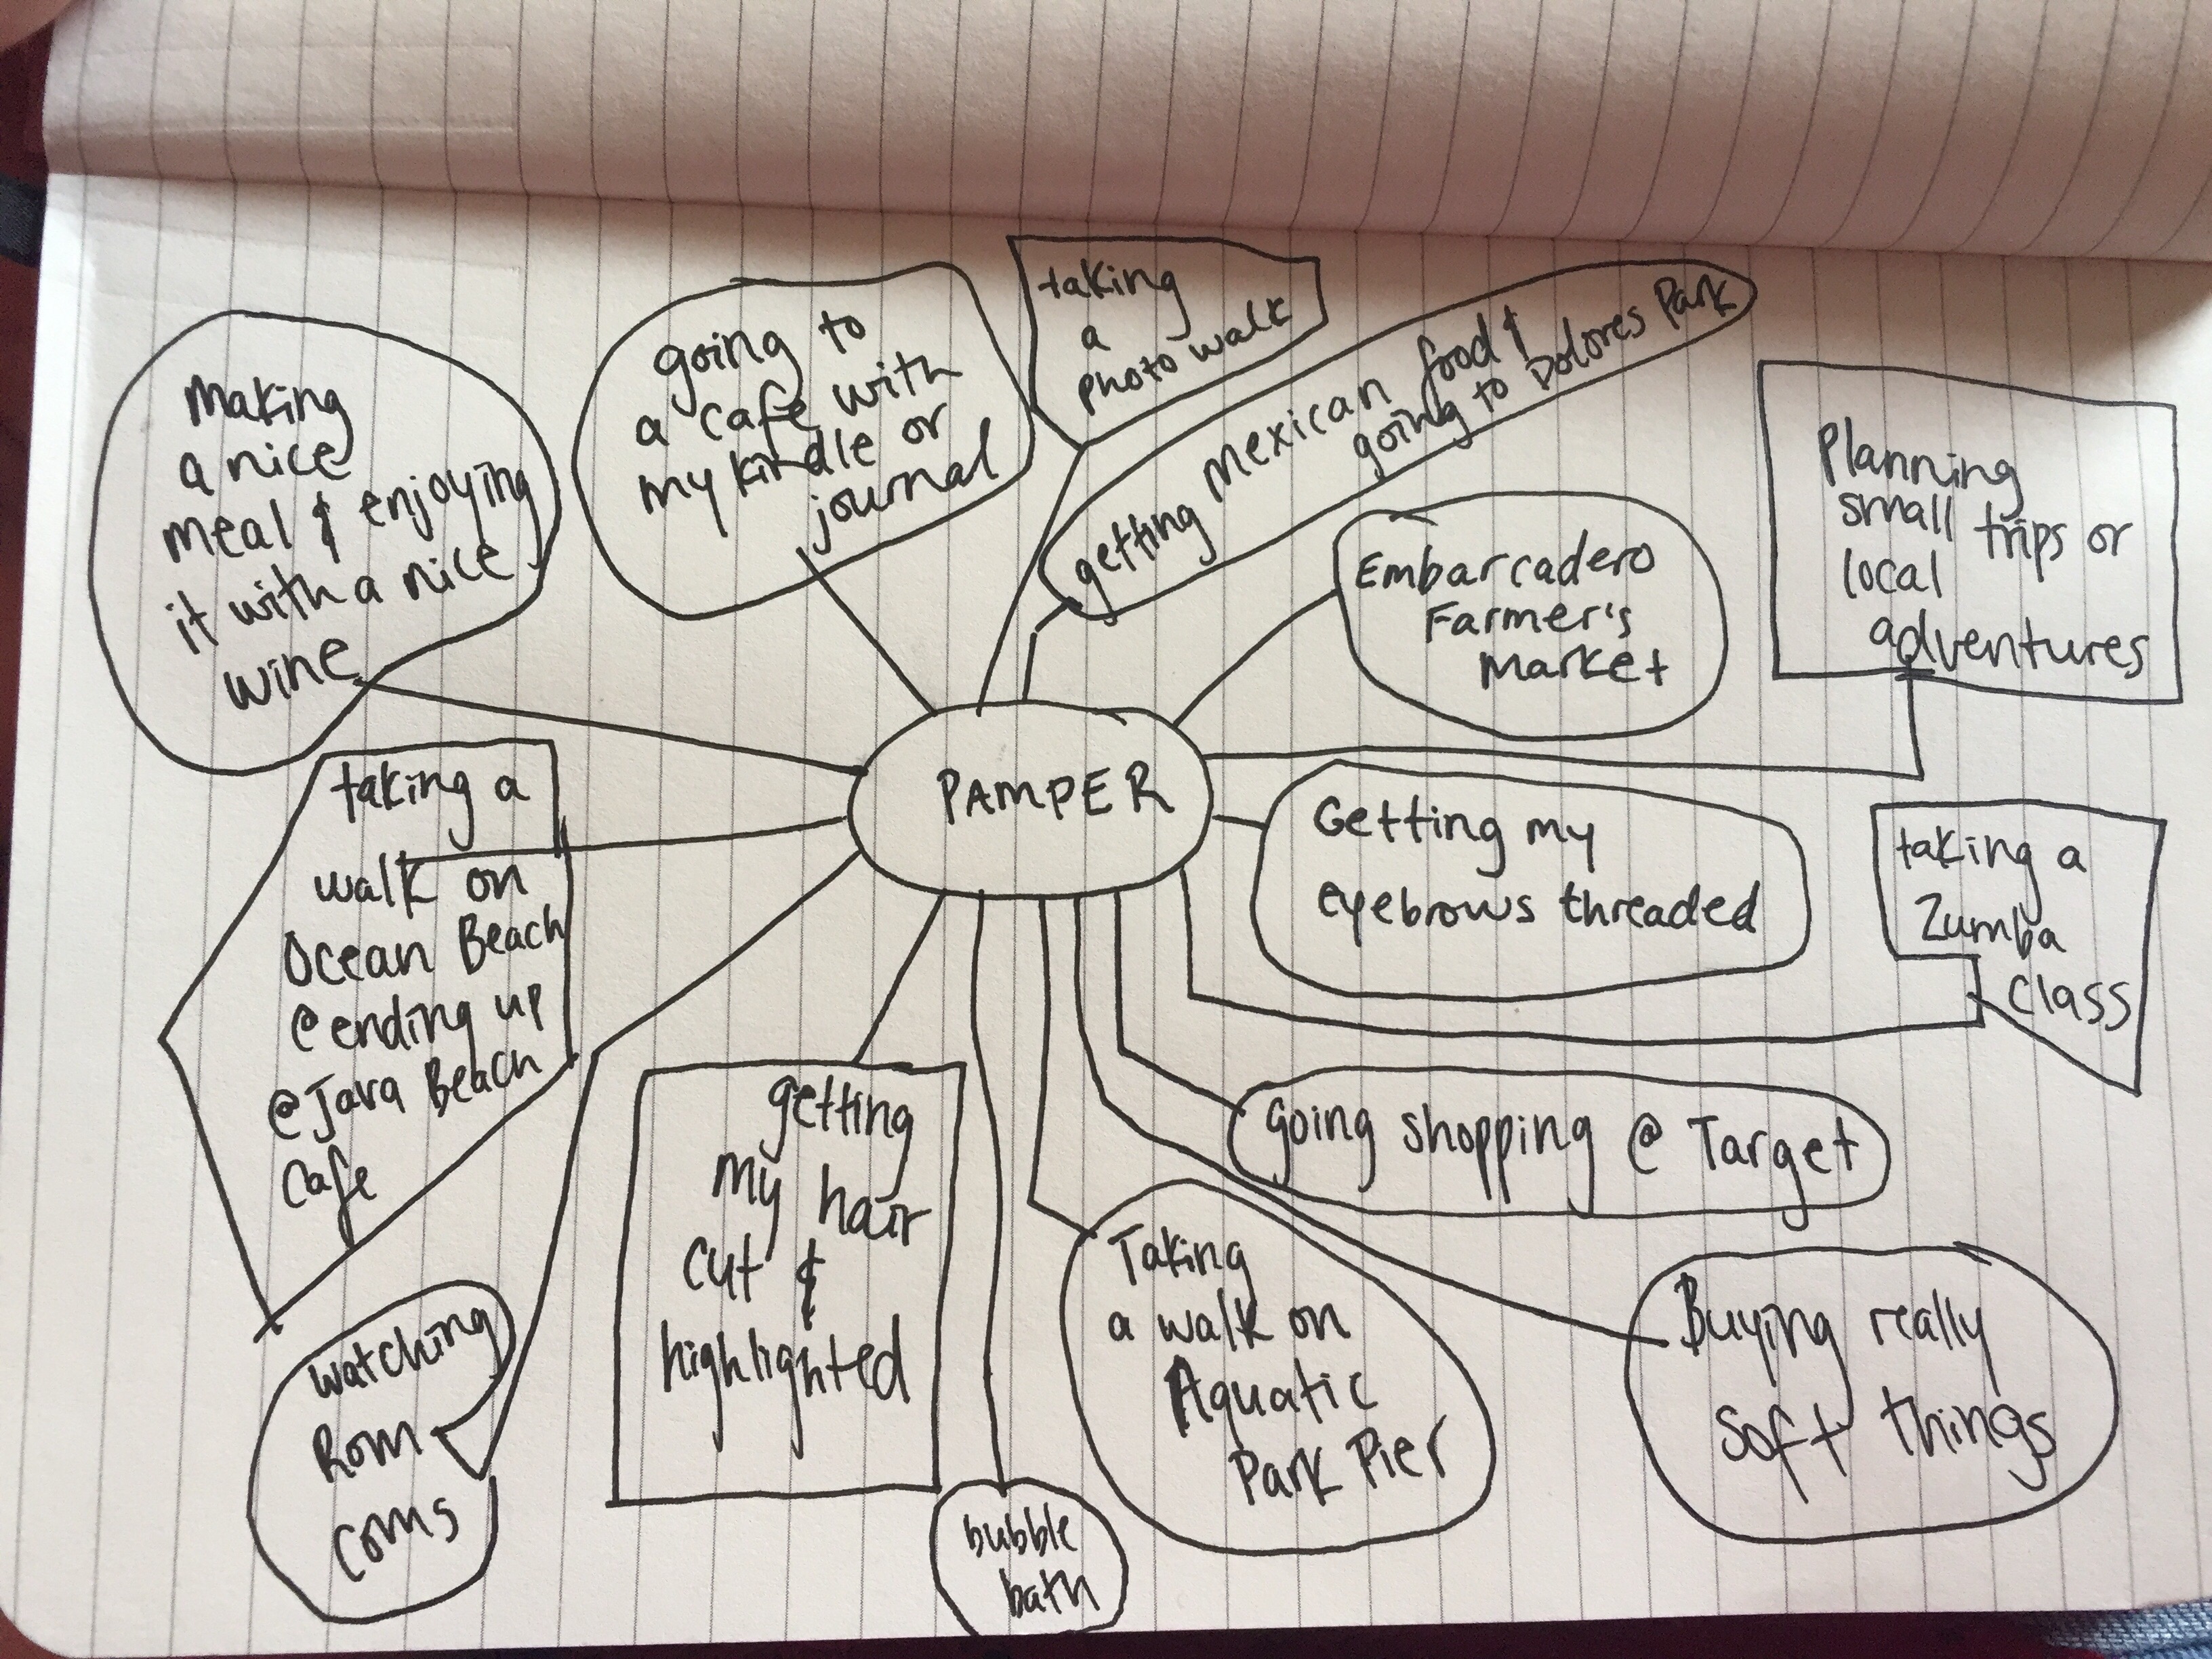 making
a nice
meal & enjoying
it with a nice
wine
going to
a cafe with
my kindle or
journal
taking
a
photo walk
getting mexican food &
going to Dolores Park
Embarcadero
Farmer's
market
Planning
small trips or
local
adventures
PAMPER
taking a
walk on
Ocean Beach
@ ending up
@ Java Beach
Cafe
Getting my
eyebrows threaded
taking a
Zumba
Class
going shopping @ Target
watching
Rom
coms
getting
my hair
cut &
highlighted
bubble
bath
Taking
a walk on
Aquatic
Park Pier
Buying really
soft things